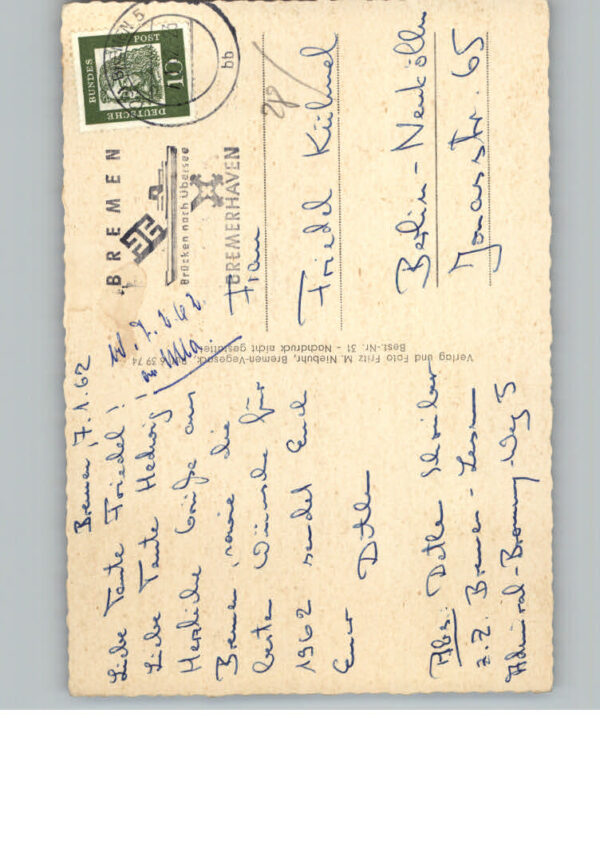 Bremen, 7.1.62
Liebe Tante Friedel!
Liebe Tante Hedwig!
Herzliche Grüße aus
Bremen, sowie die
besten Wünsche für
1962 sendet Euch
Euer
Abs:
z.Z. Bremen-Lesum
Admiral-Brommy-Weg 5
Verlag und Foto Fritz M. Niebuhr, Bremen-Vegesack
Best.-Nr. 31 - Nachdruck nicht gestattet
BREMEN
Brücken nach Übersee
BREMERHAVEN
DEUTSCHE BUNDESPOST
10
BREMEN 5
bb
Frau
Friedel Kühnel
Berlin-Neukölln
Jonasstr. 65